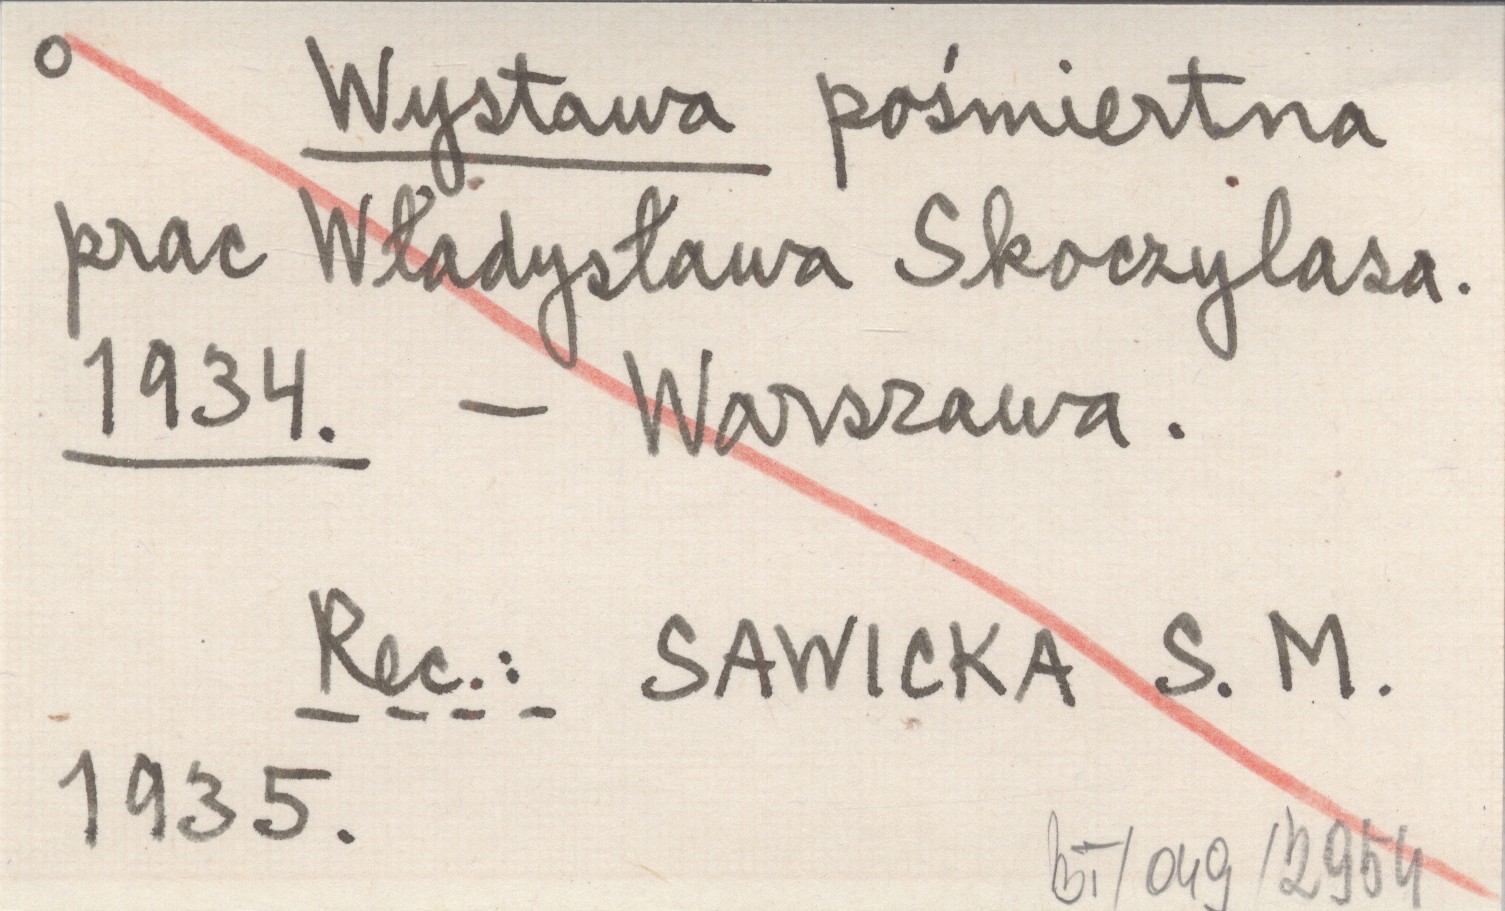 Wystawa pośmiertna
prac Władysława Skoczylasa.
1934. – Warszawa.
Rec.: SAWICKA S. M.
1935.
bI/049/2954